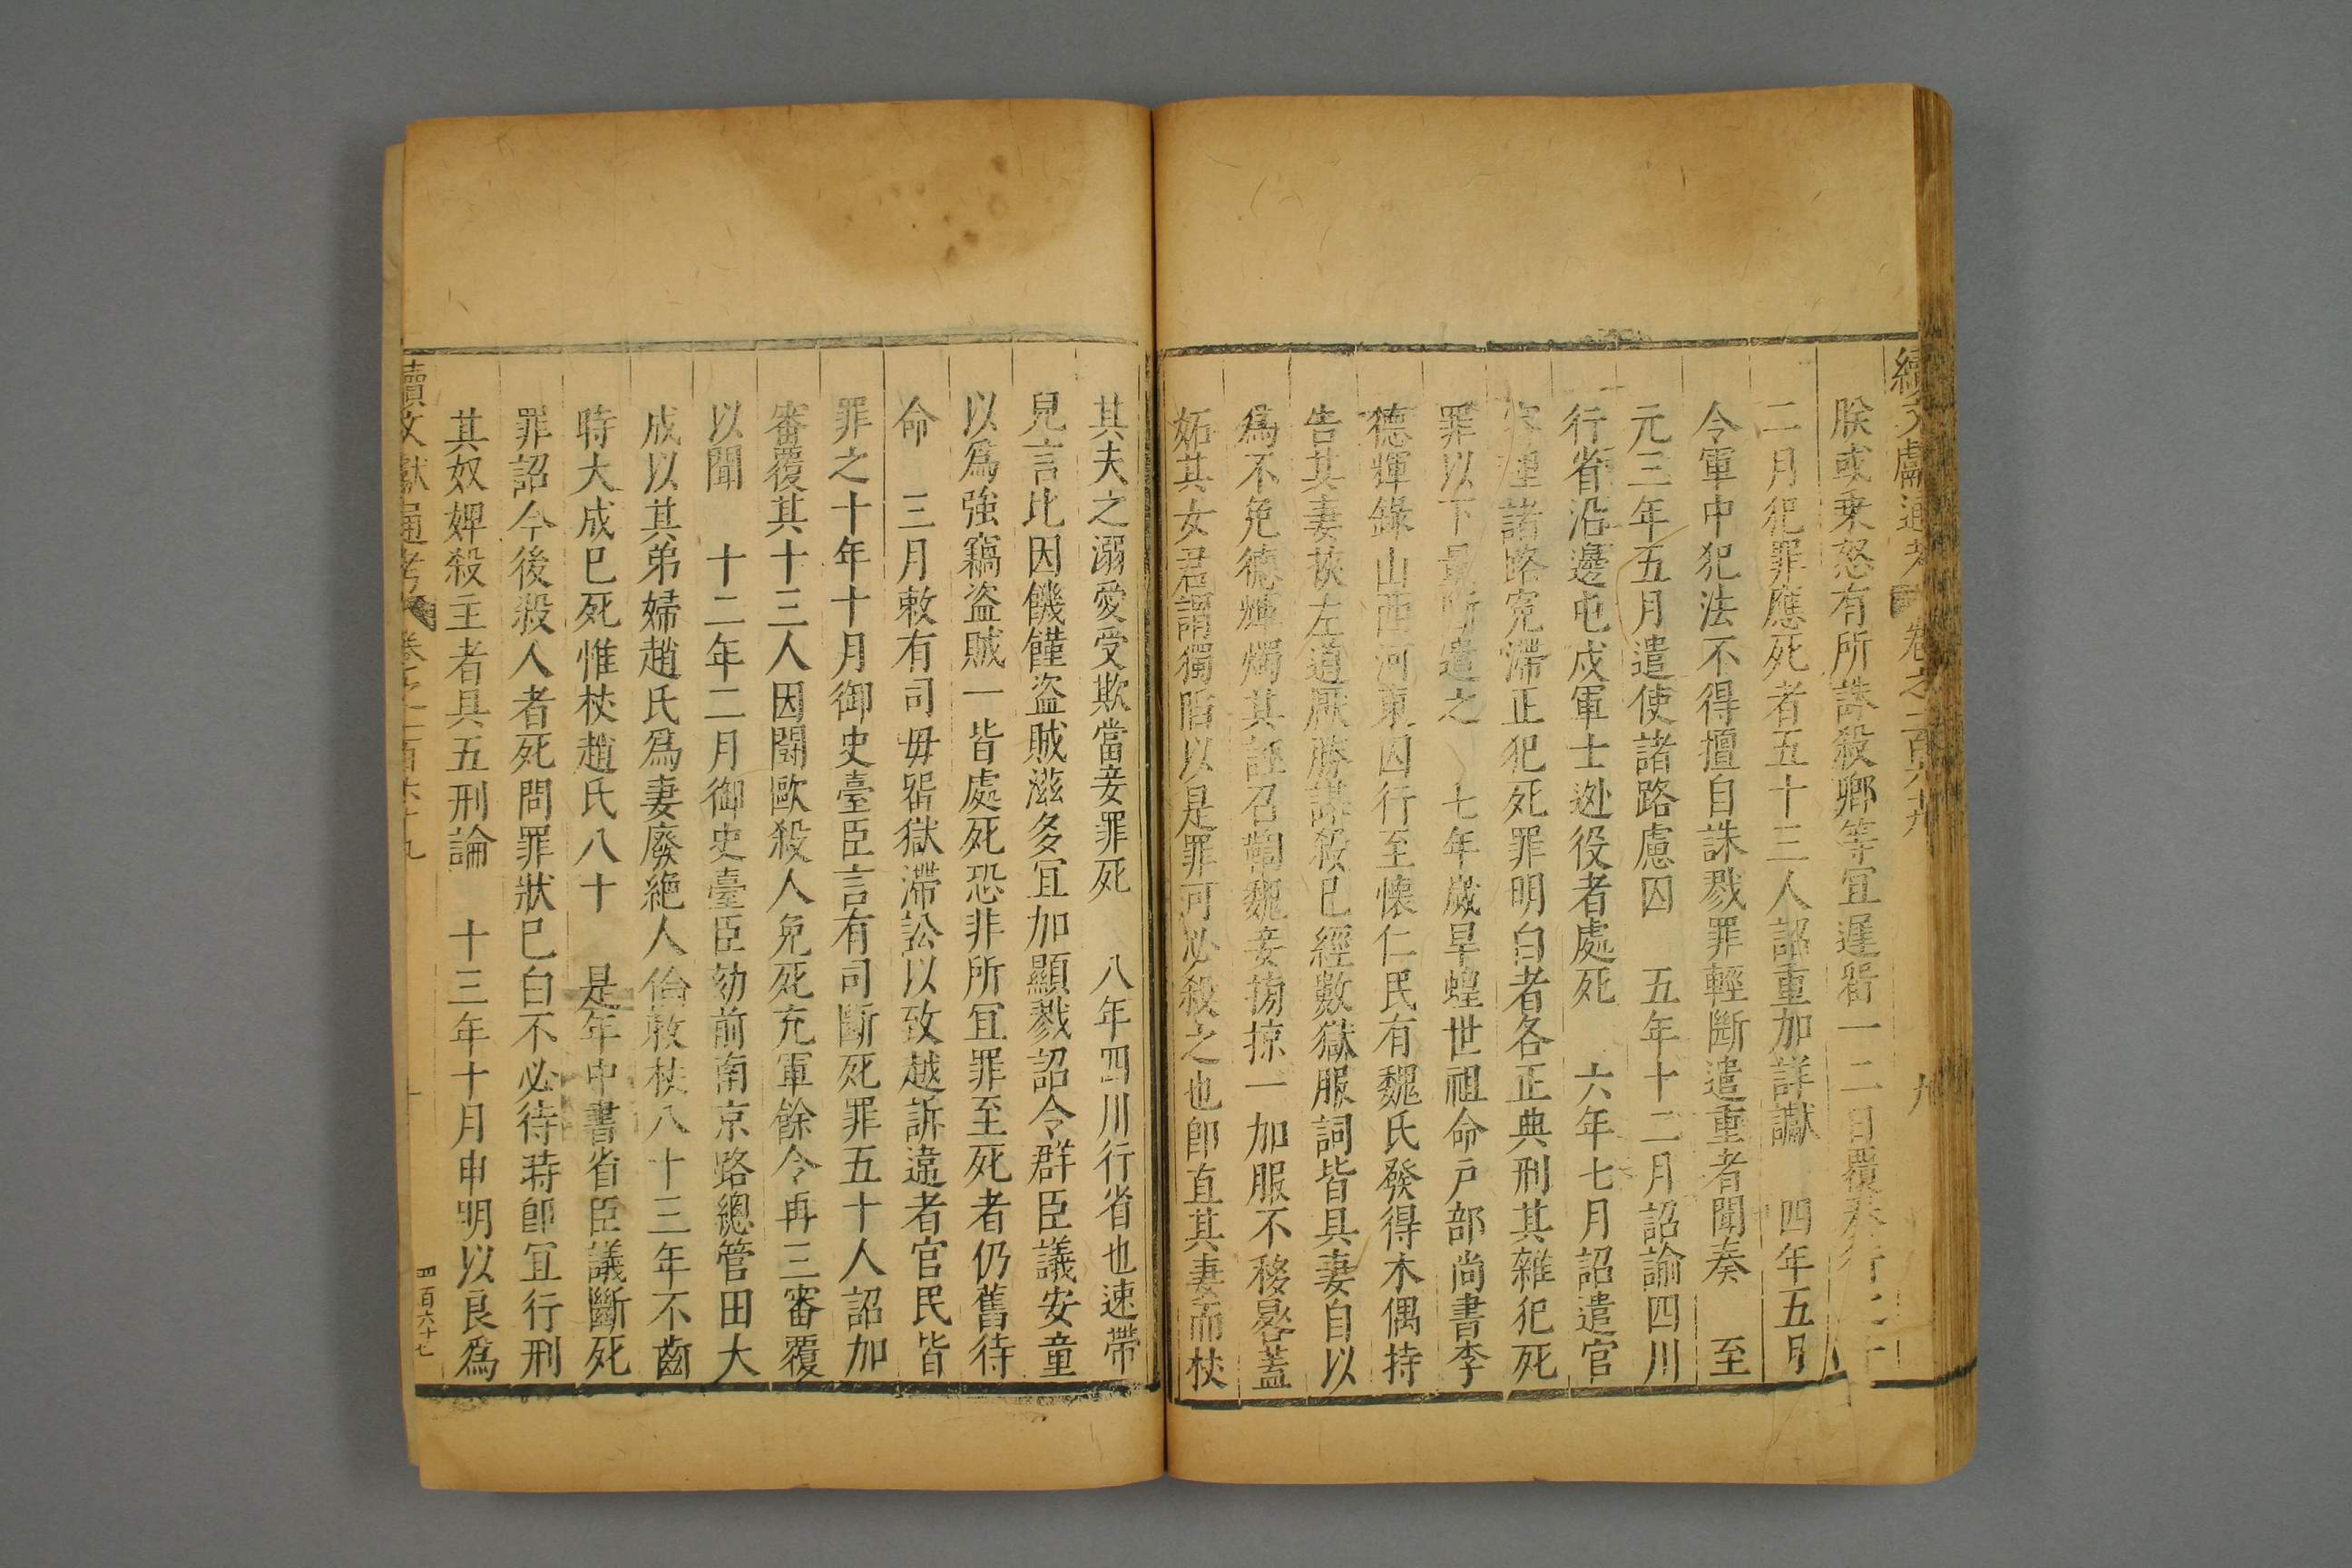 續文獻通考 卷之一百六十九 九
朕或乘怒有所誅殺卿等宜遲留一二日覆奏行之 十
二月犯罪應死者五十三人詔重加詳讞 四年五月
令軍中犯法不得擅自誅戮罪輕斷遣重者聞奏 至
元三年五月遣使諸路慮囚 五年十二月詔諭四川
行省沿邊屯戍軍士逃役者處死 六年七月詔遣官
理諸路冤滯正犯死罪明白者各正典刑其雜犯死
罪以下量斷遣之 七年歲旱蝗世祖命戶部尚書李
德輝錄山西河東囚行至懷仁民有魏氏發得木偶持
告其妻挾左道厭勝謀殺已經數獄服詞皆具妻自以
為不免德輝燭其誣召鞫魏妾搒掠一加服不移晷蓋
妬其女君謂獨陷以是罪可必殺之也卽直其妻而杖
其夫之溺愛受欺當妾罪死 八年四川行省也速帶
兒言比因饑饉盜賊滋多宜加顯戮詔令群臣議安童
以爲強竊盜賊一皆處死恐非所宜罪至死者仍舊待
命 三月敕有司毋畱獄滯訟以致越訴違者官民皆
罪之十年十月御史臺臣言有司斷死罪五十人詔加
審覆其十三人因鬪歐殺人免死充軍餘令再三審覆
以聞 十二年二月御史臺臣劾前南京路總管田大
成以其弟婦趙氏爲妻廢絶人倫敕杖八十三年不齒
時大成已死惟杖趙氏八十 是年中書省臣議斷死
罪詔今後殺人者死問罪狀已白不必待時卽宜行刑
其奴婢殺主者具五刑論 十三年十月申明以良爲
續文獻通考 卷之一百六十九 十 四百六十七